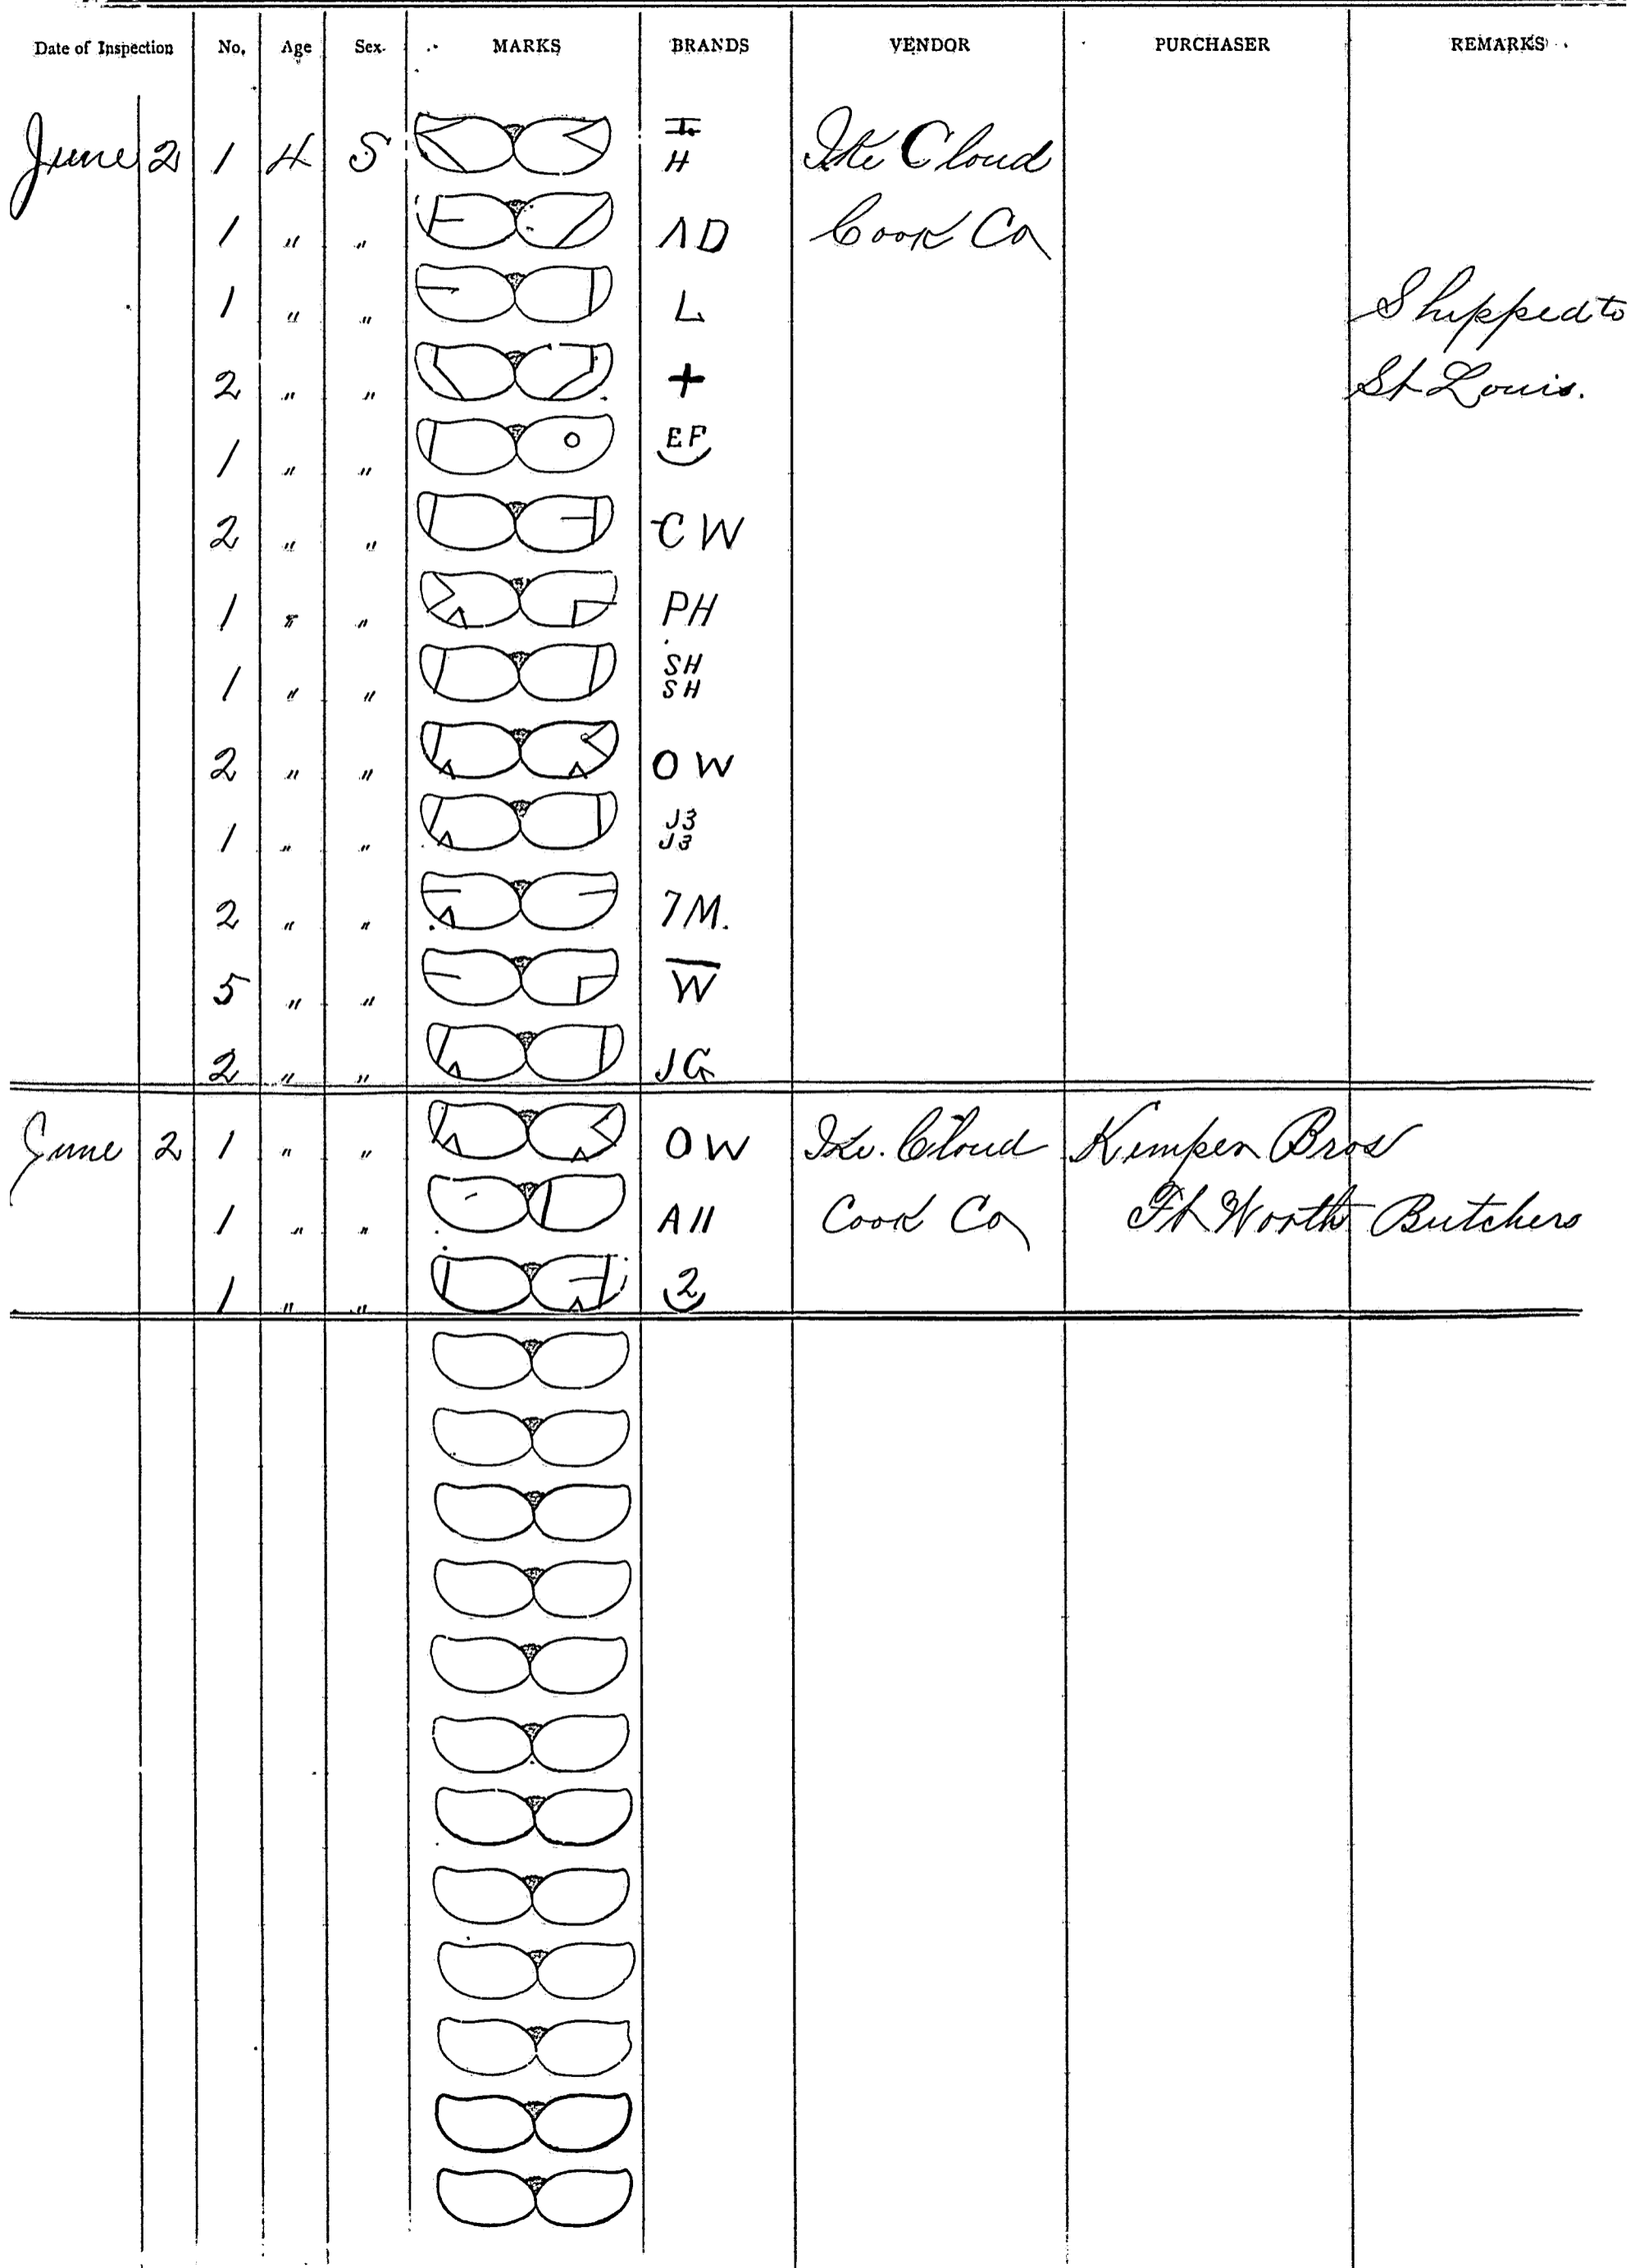 Date of Inspection No. Age Sex. MARKS BRANDS VENDOR PURCHASER REMARKS
June 2 1 4 S H Ike Cloud
1 " " ΛD Cook Co
1 " " L Shipped to
2 " " + St Louis.
1 " " EF
2 " " CW
1 " " PH
1 " " SH
SH
2 " " OW
1 " " J3
J3
2 " " 7M.
5 " " W
2 " " JG
June 2 1 " " OW Ike. Cloud Kemper Bros
1 " " A11 Cook Co Ft Worth Butchers
1 " " 2